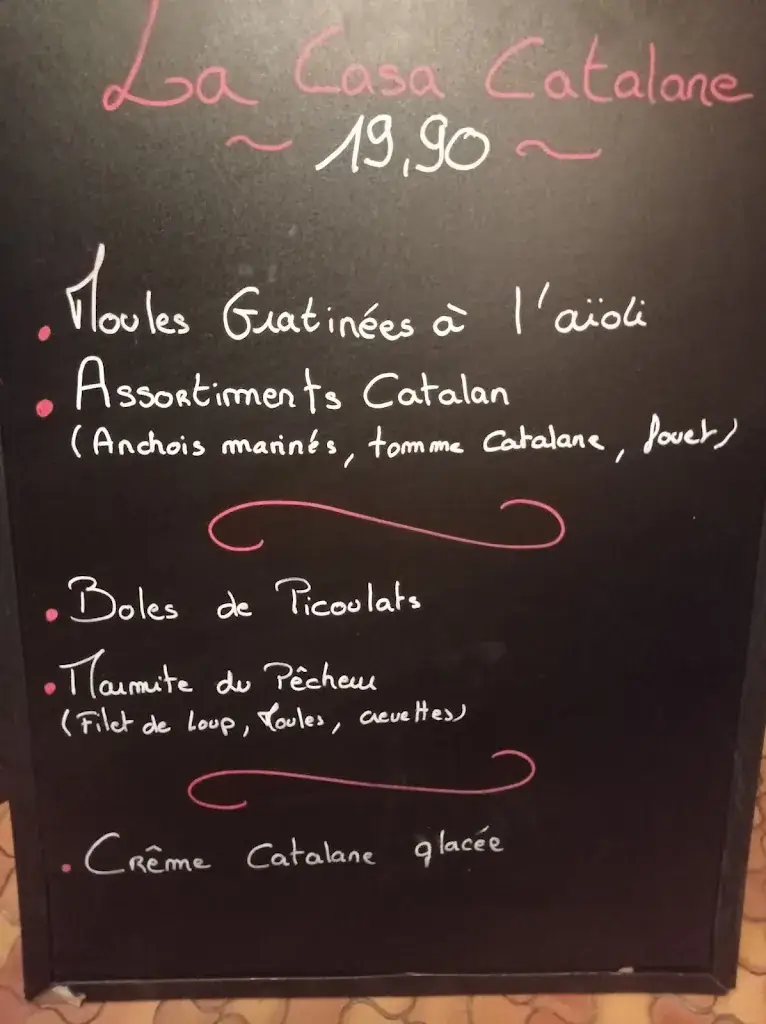 La Casa Catalane
~ 19,90 ~
• Moules Gratinées à l'aïoli
• Assortiments Catalan
(Anchois marinés, tomme Catalane, fouet)
• Boles de Picoulats
• Marmite du Pêcheur
(Filet de Loup, Moules, crevettes)
• Crême Catalane glacée